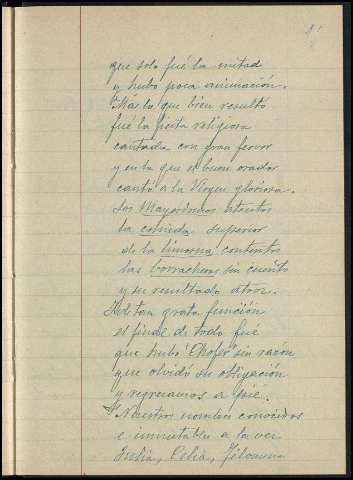 que solo fué la mitad
y hubo poca animación.
Más la que bien resultó
fué la fiesta religiosa
cantada con gran fervor
y en la que el buen orador
cantó a la Virgen gloriosa.
Los Mayordomos atentos
la comida superior
de la limosna contentos
las borracheras sin cuento
y su resultado atroz.
De tan grata función
el final de todo fué
que hubo "Chofer" sin razón
que olvidó su obligación
y regresamos a pié.
Nuestros nombres conocidos
e inmutables a la vez
Julia, Celia, Filomena